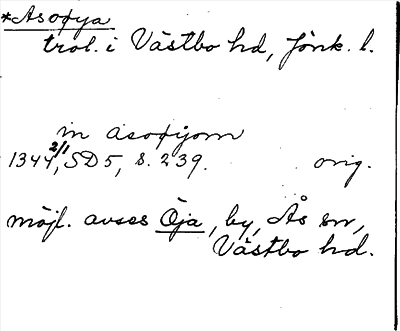 *Asoøya
trol. i Västbo hd, Jönk. l.
in asoøiom
1344 2/1, SD 5, s. 239. orig.
möjl. avses Öja, by, Ås sn,
Västbo hd.